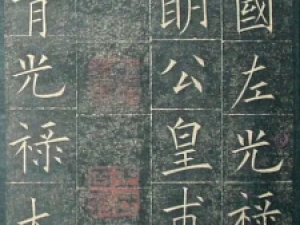 國左光祿
明公皇甫
青光祿大